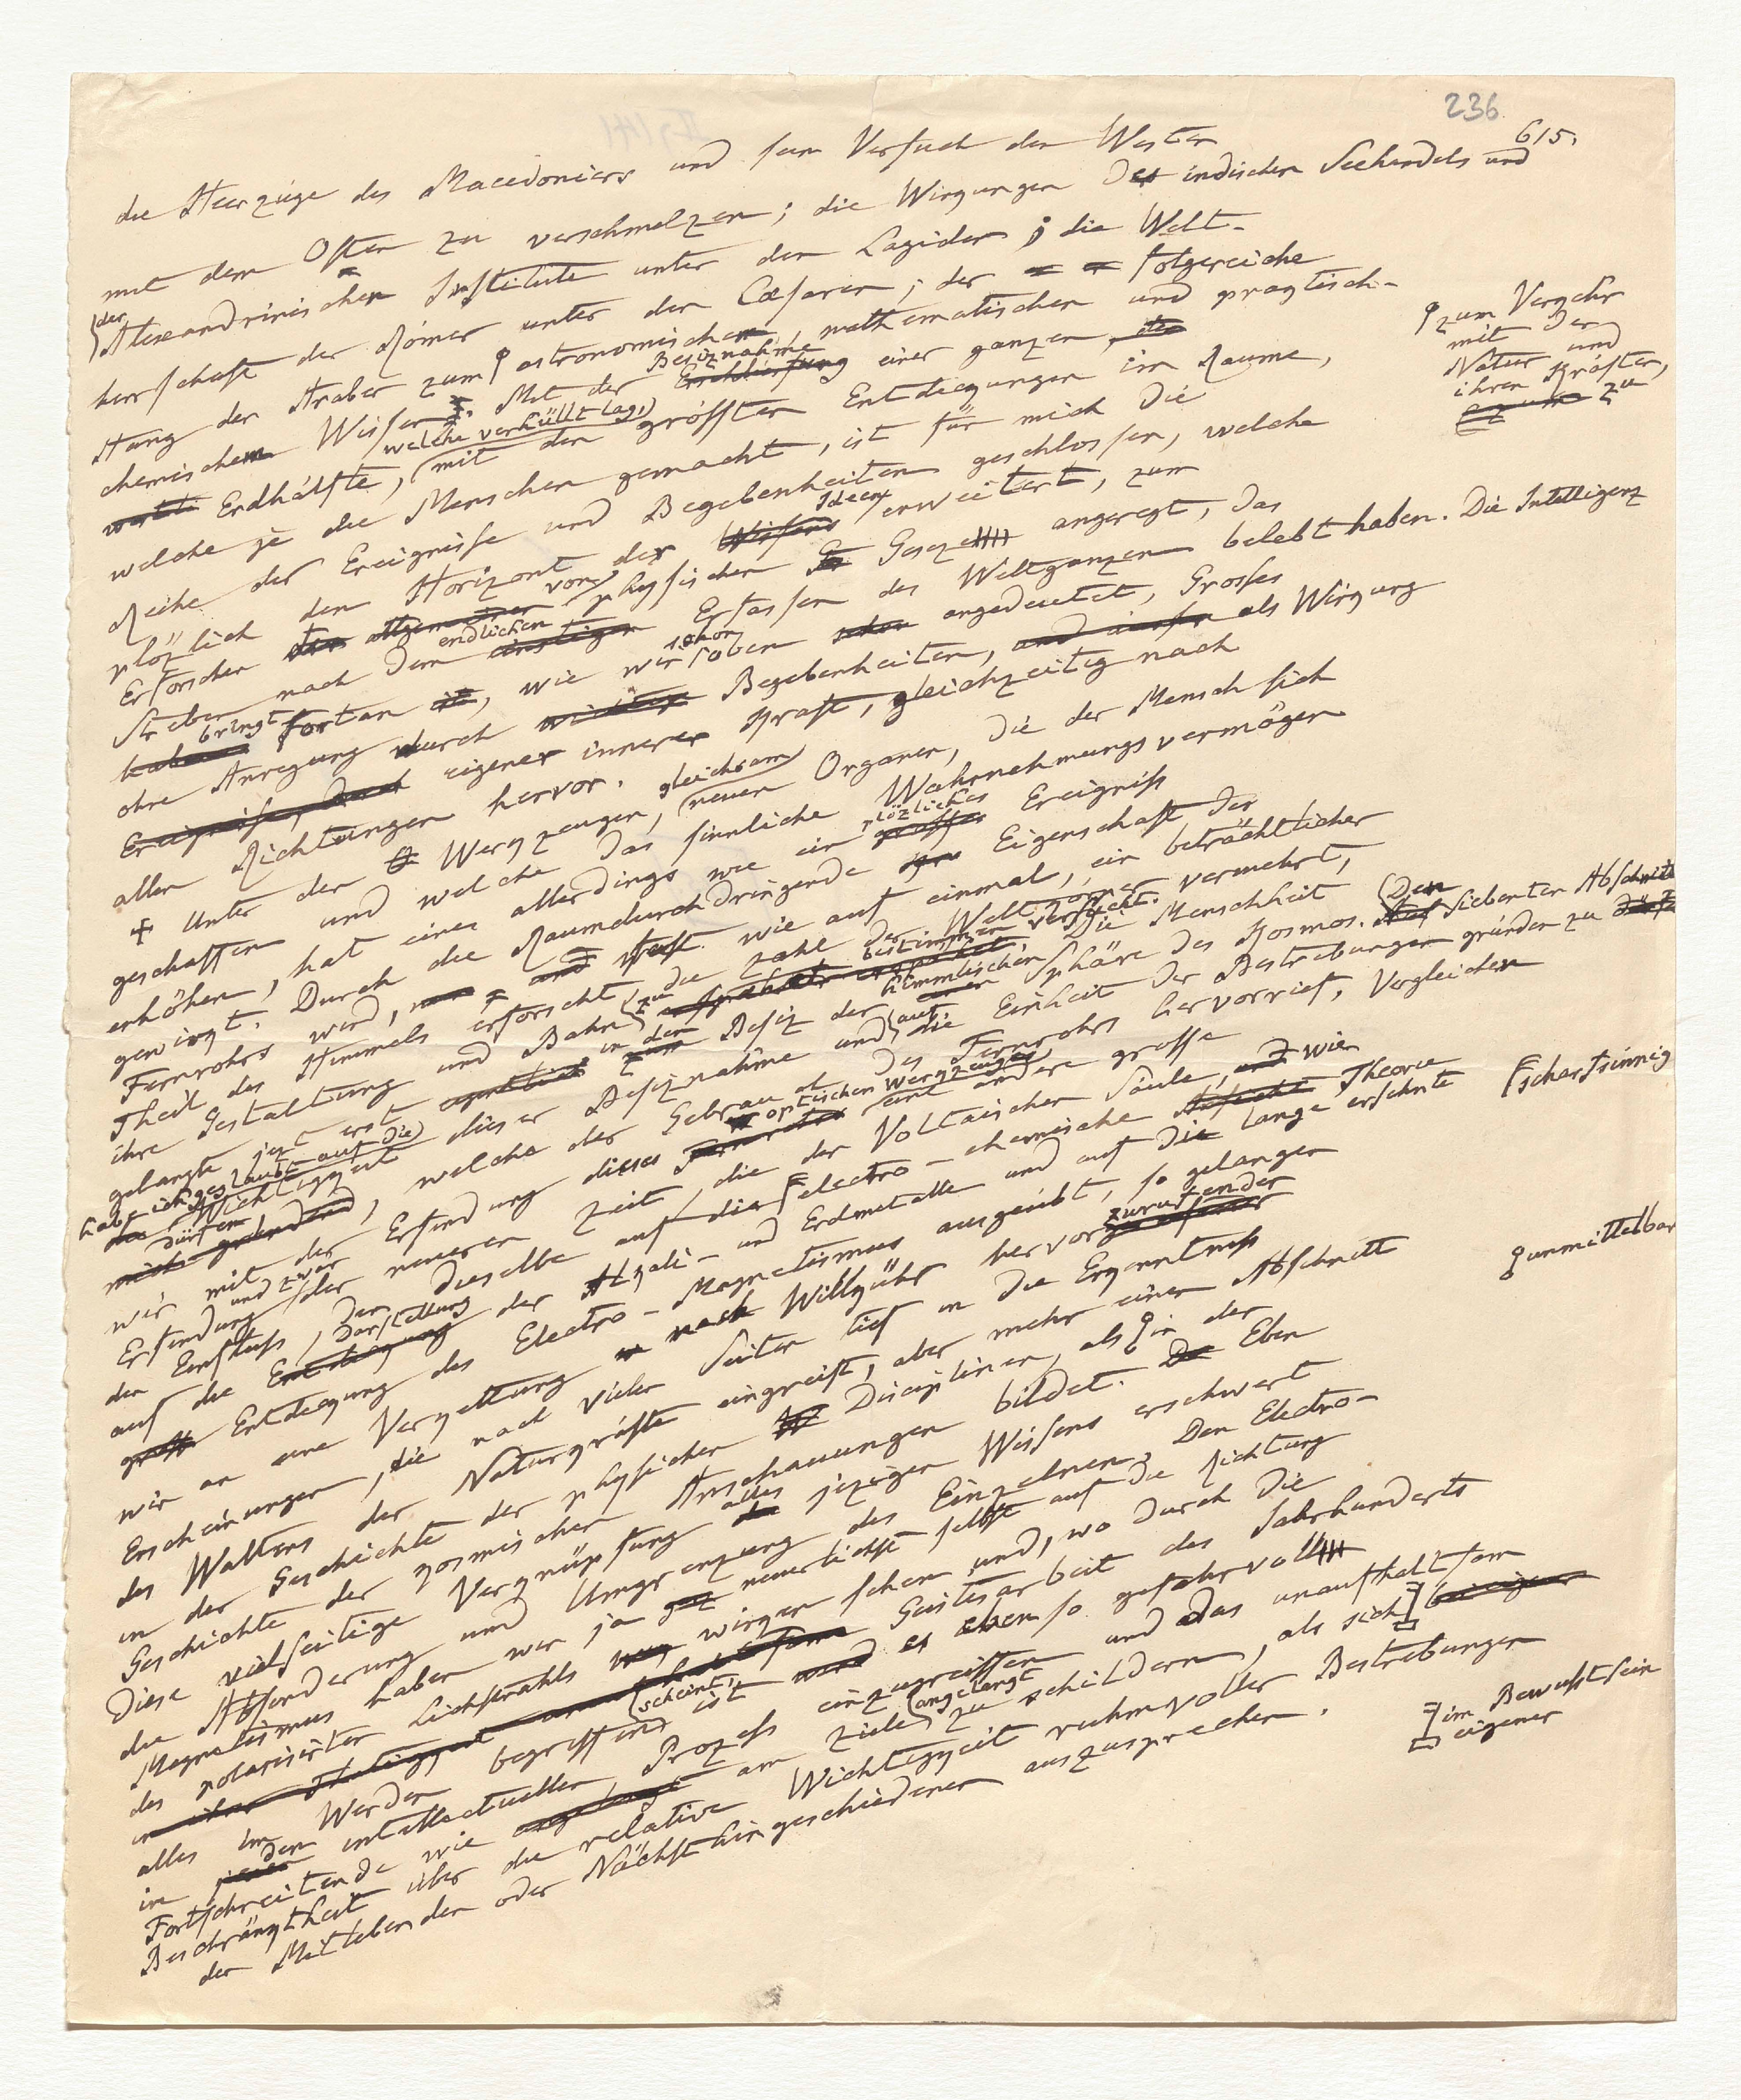 236
615.
die Heerzüge des Macedoniers und sein Versuch den Westen
mit dem Osten zu verschmelzen; die Wirqungen des indischen Seehandels und
der Alexandrinischen Institute unter den Lagiden; die Welt-
herrschaft der Römer unter den Cæsaren; der folgereiche
Hang der Araber zum astronomischen, mathematischen und pragtisch-
chemischen Wissen. Mit der Besiznahme Erschliessung einer ganzen
Erdhälfte, welche verhüllt lag, mit den grössten Entdequngen im Raume,
zum Verqehr
mit der
Natur und
ihren Kräften,
zu
welche je die Menschen gemacht, ist für mich die
Reihe der Ereignisse und Begebenheiten geschlossen, welche
plözlich den Horizont der Wissens Ideen erweitert, zum
Erforschen der allgemeinen von physischen Gesezen angeregt, das
Streben nach dem einstigen endlichen Erfassen des Weltganzen belebt haben. Die Intelligenz
haben bringt fortan, wie wir schon oben schon angedeutet, Grosses
ohne Anregung durch Begebenheiten, als Wirqung
Ereignisse, durch eigener innerer Kraft, gleichzeitig nach
allen Richtungen hervor.
+ Unter den Werqzeugen, gleichsam neuen Organen, die der Mensch sich
geschaffen und welche das sinnliche Wahrnehmungsvermögen
erhöhen, hat eines allerdings wie ein grosses plözliches Ereigniss
gewirqt. Durch die Raumdurchdringende Eigenschaft des
Fernrohrs wird, und fast wie auf einmal, ein beträchtlicher
Theil des Himmels erforscht, die Zahl der Weltqörper vermehrt,
ihre Gestaltung und Bahn zu bestimmen versucht. Die Menschheit
gelangte jezt erst in den zum Besiz der himmlischen Sphäre des Kosmos. Den Auf siebenten Abschnitt
habe ich geglaubt auf die Wichtigqeit dieser Besiznahme und auf die Einheit der Bestrebungen gründen zu
dürfen, welche der Gebrauch des Fernrohrs hervorrief. Vergleichen
wir mit der Erfindung dieses Fernrohrs optischen Werqzeuges eine andere grosse
Erfindung und zwar der neueren Zeit, die der Voltaischen Säule, und wie
den Einfluss, den dieselbe auf die scharfsinnig electro-chemische Theorie
auf die Entdequng Darstellung der Alqali- und Erdmetalle und auf die lange ersehnte
Entdequng des Electro-Magnetismus ausgeübt, so gelangen
wir an eine Verqettung nach Willqühr hervorzurufender
Erscheinungen, die nach vielen Seiten tief in die Erqenntniss
des Waltens der Naturqräfte eingreift, aber mehr einen Abschnitt
in der Geschichte der physischen Disciplinen, als unmittelbar in der
Geschichte der qosmischen Anschauungen bildet. Eben
Diese vielseitige Verqnüpfung alles jezigen Wissens erschwert
die Absonderung und Umgrenzung des Einzelnen. Den Electro-
Magnetismus haben wir ja neuerlichst selbst auf die Richtung
des polarisirten Lichtstrahls wirqen sehen und, wo durch die
in ihrer Thätigqeit Geistesarbeit des Jahrhunderts
alles im Werden begriffen scheint, ist es eben so gefahrvoll
in den intellectuellen Prozess einzugreiffen und das unaufhaltsam
Fortschreitende wie am Ziele angelangt zu schildern, als sich im Bewusstsein
eigener
Beschränqtheit über die relative Wichtigqeit ruhmvoller Bestrebungen
der Mitlebenden oder Nächsthingeschiedenen auszusprechen.